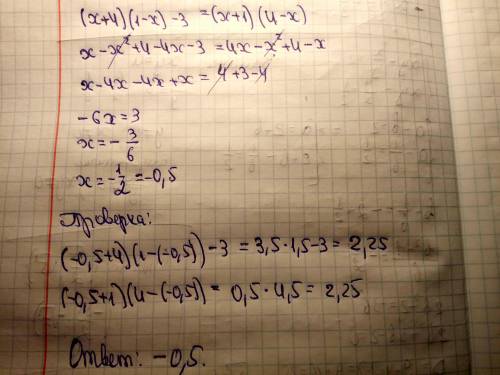 (x+4)(1-x)-3=(x+1)(4-x)
x-x²+4-4x-3=4x-x²+4-x
x-4x-4x+x=4+3-4
-6x=3
x=-3/6
x=-1/2=-0,5
Проверка:
(-0,5+4)(1-(-0,5))-3=3,5·1,5-3=2,25
(-0,5+1)(4-(-0,5)=0,5·4,5=2,25
Ответ: -0,5.